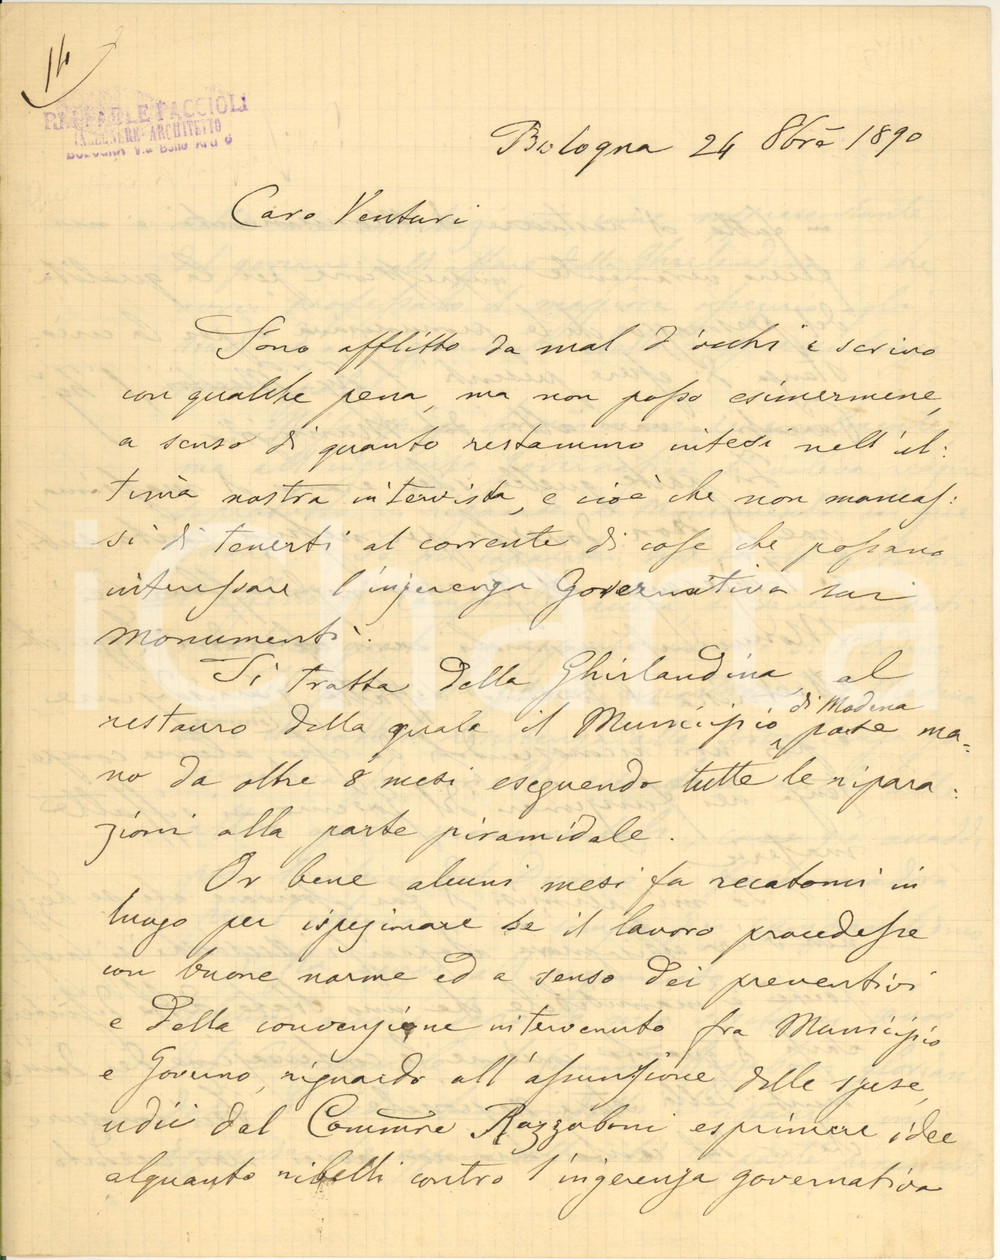 14
RAFFAELE FACCIOLI
INGEGNERE ARCHITETTO
BOLOGNA Via Belle Arti 6
Bologna 24 8bre 1890
Caro Venturi
Sono afflitto da mal d'occhi e scrivo
con qualche pena, ma non posso esimermene,
a senso di quanto restammo intesi nell'ul:
tima nostra intervista, e cioè che non mancas:
si di tenerti al corrente di cose che possano
interessare l'ingerenza Governativa sui
monumenti.
Si tratta della Ghirlandina, al
restauro della quale il Municipio di Modena pose ma=
no da oltre 8 mesi eseguendo tutte le ripara:
zioni alla parte piramidale.
Or bene alcuni mesi fa recatomi in
luogo per ispezionare se il lavoro procedesse
con buone norme ed a senso dei preventivi
e della convenzione intervenuta fra Municipio
e Governo, riguardo all'assunzione delle spese,
udii dal Commre Razzaboni esprimere idee
alquanto ribelli contro l'ingerenza governativa
iCharta